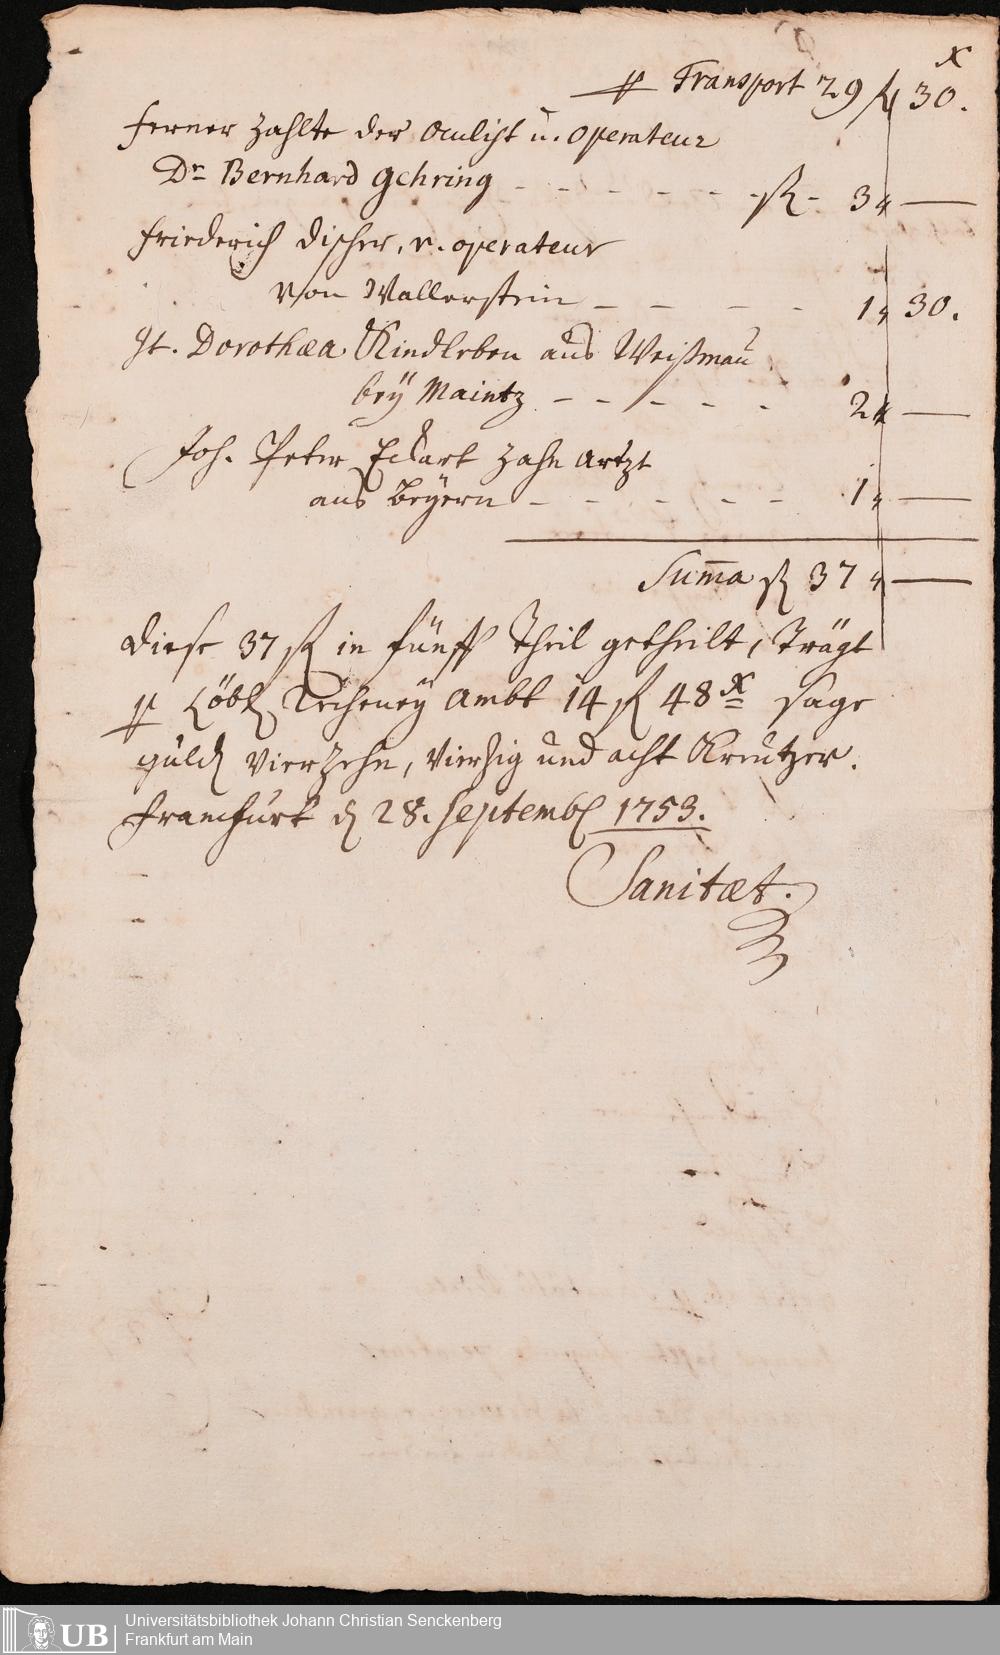 x
p Transport 29 fl 30.
ferner zahlte der Oculist u. Operateur
Dr Bernhard Gehring - - - - - - - fl - 3 „ —
Friederich Discher, v. operateur
von Wallerstein - - - - 1 „ 30.
It. Dorothæa Kindleben aus Weißmau
bey Maintz - - - - - 2 „ —
Joh. Peter Eckart Zahn Artzt
aus Beyern - - - - - - 1 „ —
Summa fl 37 „ —
Diese 37 fl in fünff Theil getheilt, Trägt
p Löbl Recheney Ambt 14 fl 48 x sage
guld vierzehn, vierzig und acht Kreutzer.
Franckfurt d 28. Septembl 1753.
Sanitæt.
UB
Universitätsbibliothek Johann Christian Senckenberg
Frankfurt am Main